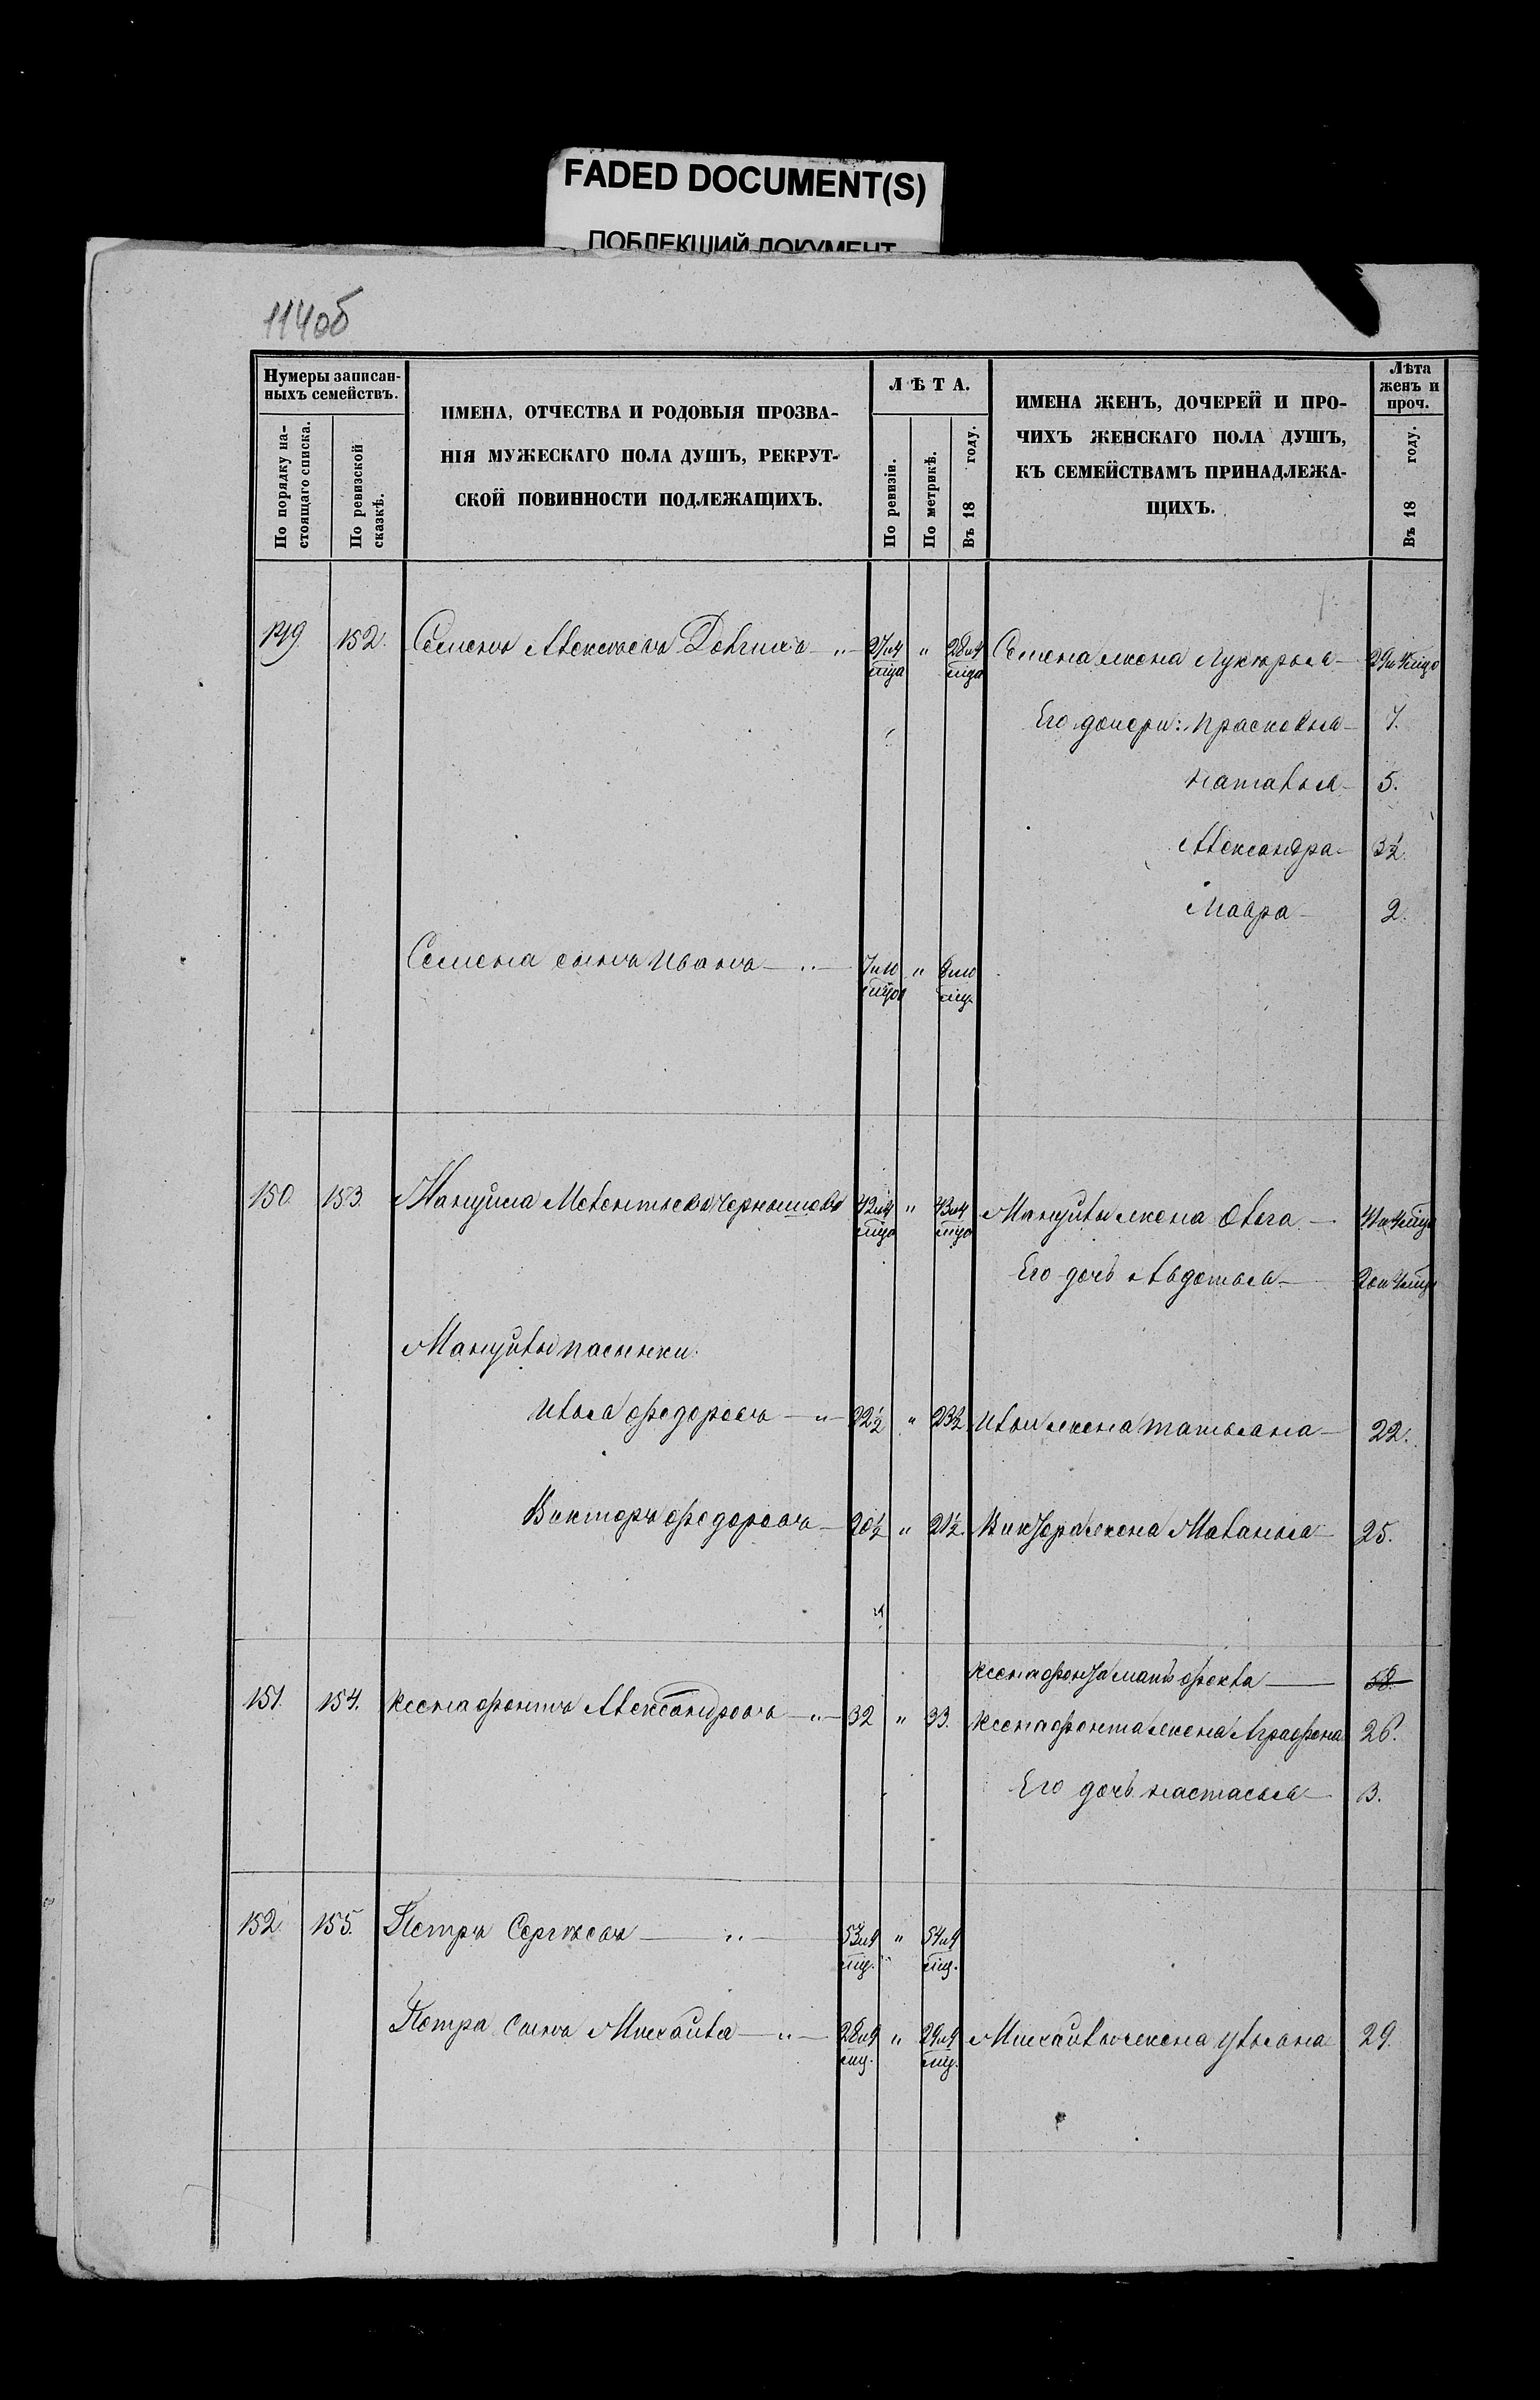 FADED DOCUMENT(S)
ПОБЛЕКШИЙ ДОКУМЕНТ
114об
Нумеры записан-
ныхъ семействъ.
По порядку на-
стоящаго списка.
По ревизской
сказкѣ.
ИМЕНА, ОТЧЕСТВА И РОДОВЫЯ ПРОЗВА-
НІЯ МУЖЕСКАГО ПОЛА ДУШЪ, РЕКРУТ-
СКОЙ ПОВИННОСТИ ПОДЛЕЖАЩИХЪ.
ЛѢТА.
По ревизіи.
По метрикѣ.
Въ 18 году.
ИМЕНА ЖЕНЪ, ДОЧЕРЕЙ И ПРО-
ЧИХЪ ЖЕНСКАГО ПОЛА ДУШЪ,
КЪ СЕМЕЙСТВАМЪ ПРИНАДЛЕЖА-
ЩИХЪ.
Лѣта
женъ и
проч.
Въ 18 году.
149. 152. Семенъ Алексѣевъ Долгихъ — „ — 27 и 4 мца „ 28 и 4 мца Семена жена Лукерья — 29 и 4 мцо
Его дочери: Прасковья — 7.
Наталья — 5.
Александра — 3½.
Мавра — 2.
Семена сынъ Иванъ — „ — 7 и 10 „ 8 и 10 мц.
150. 153. Мануйла Мелентьевъ 42 и 4 мца „ 43 и 4 мца Мануйлы жена Ольга — 41 и 4 мца
Его дочь Авдотья — 20 и 4 мца
Мануйлы пасынки:
Илья Федоровъ — „ — 22½ „ 23½. Ильи жена Татьяна — 22.
Викторъ Федоровъ — 20½ „ 21½. Виктора жена Маланья — 25.
Ксенафонта мать Фекла — 58.
151. 154. Ксенафонтъ Александровъ — „ — 32 „ 33. Ксенафонта жена Аграфена 26.
Его дочь Настасья — 3.
152. 155. Петръ Сергѣевъ — „ — 53 и 4 мц. „ 54 и 4 мц.
Петра сынъ Михайла — „ — 28 и 4 мц. „ 29 и 4 мц. Михайлы жена Ульяна 29.